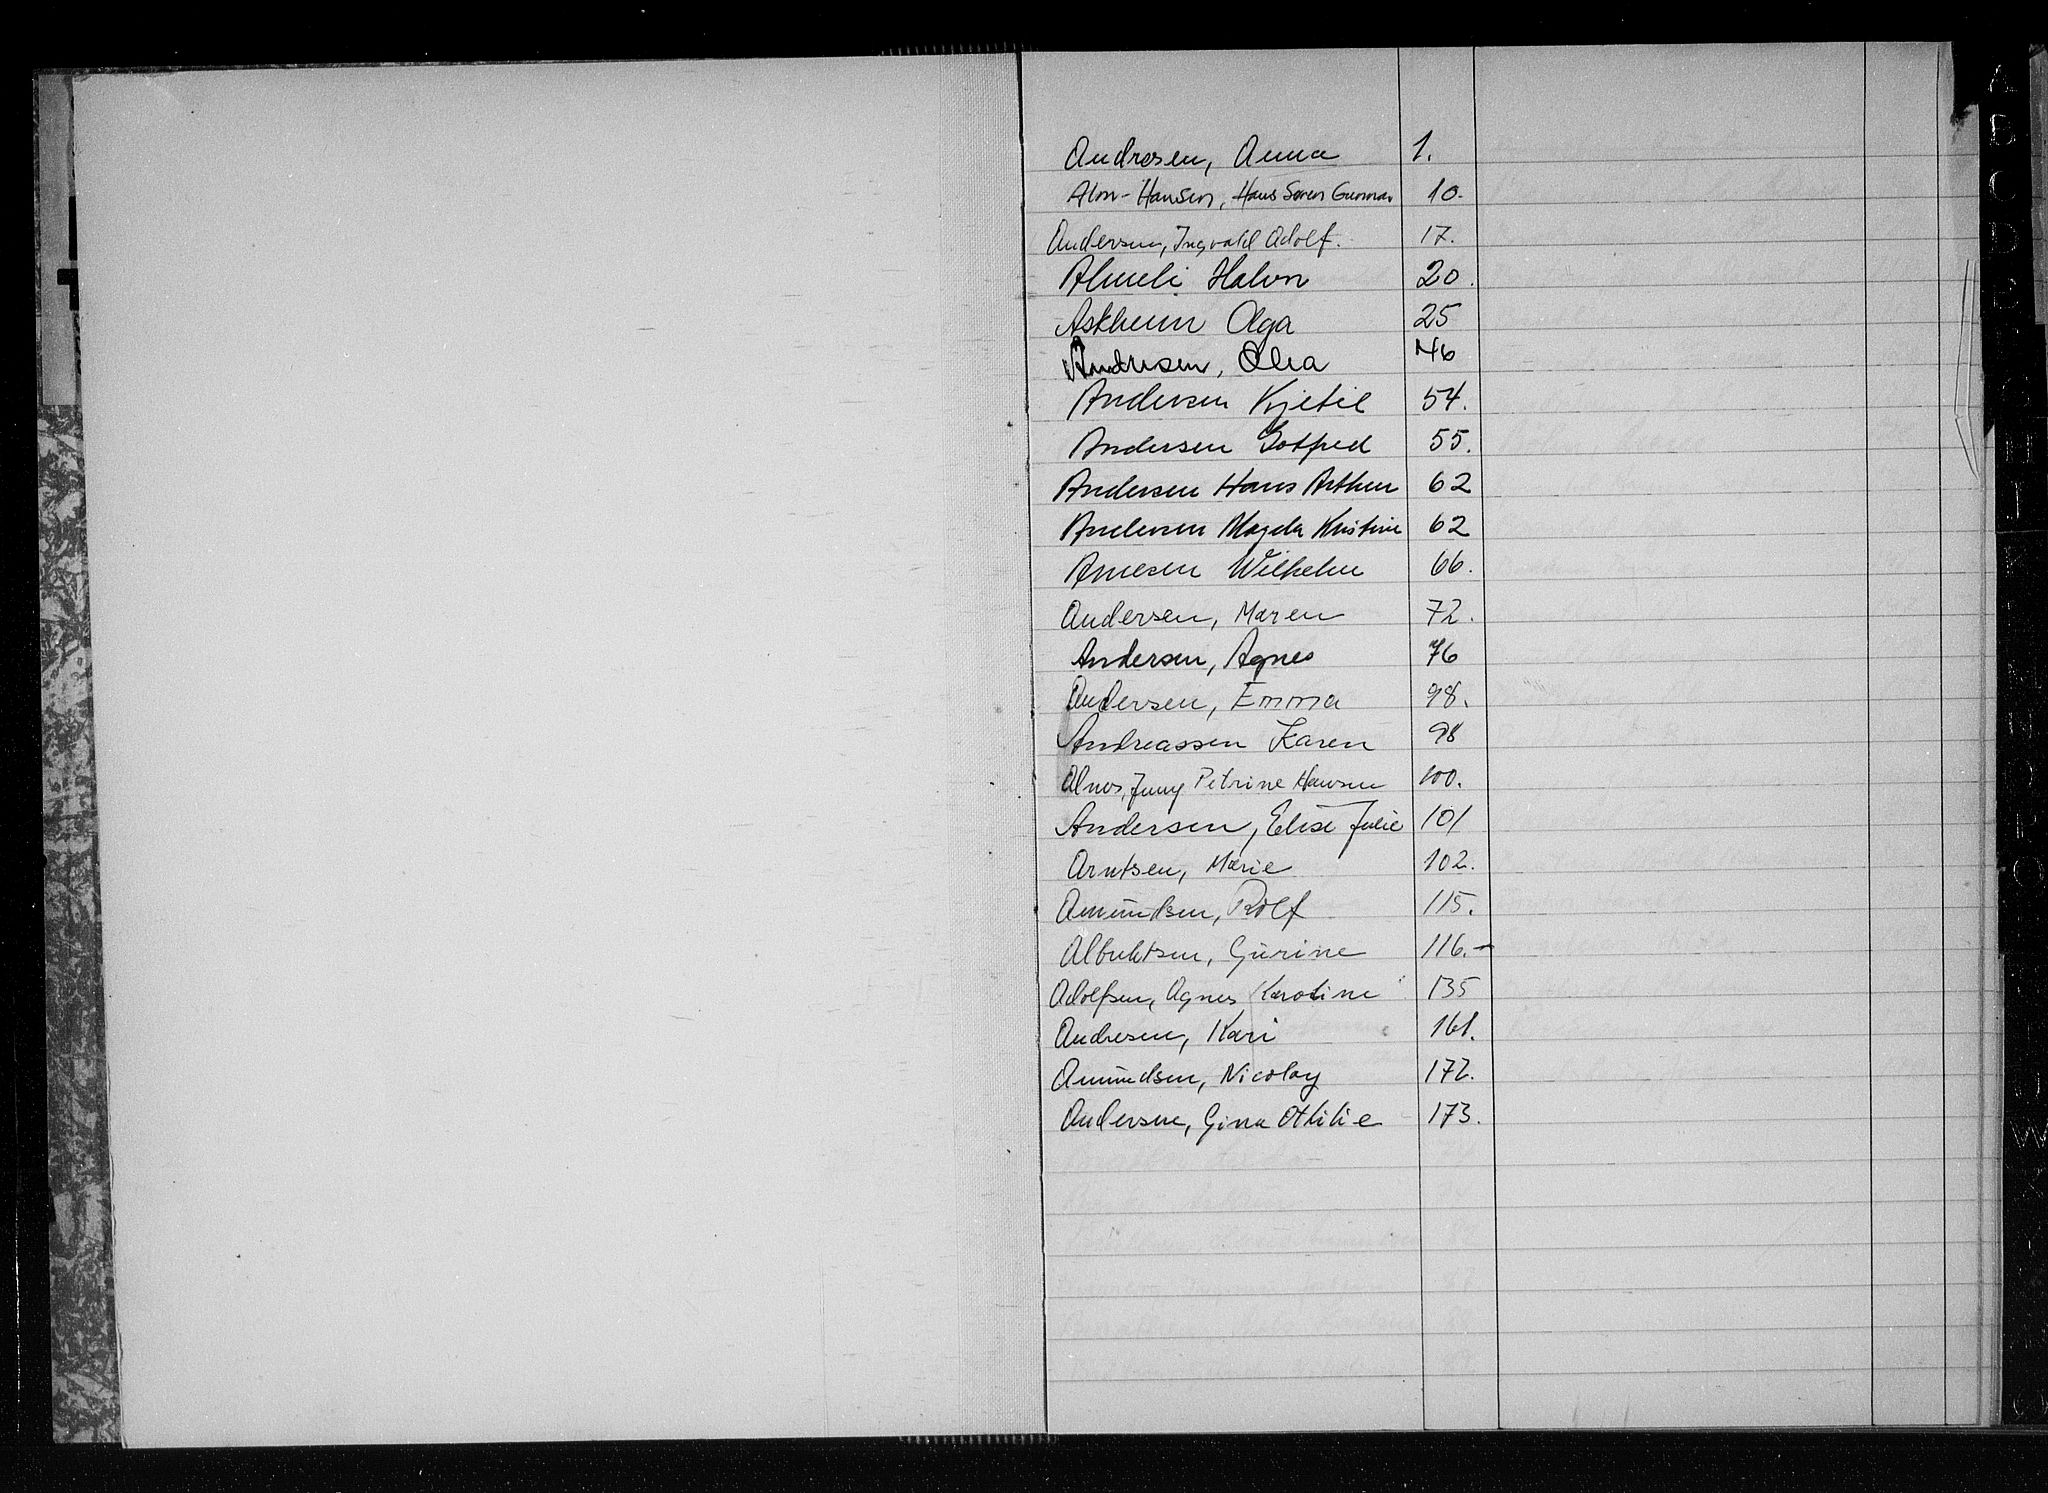 Andresen, Anna 1.
Alm-Hansen, Hans Søren Gunnar 10.
Andersen, Ingvald Adolf. 17.
Almeli Halvor 20.
Askheim Olga 25
Andresen, Olea 46
Andersen Kjetil 54.
Andersen Gotfred 55.
Andersen Hans Arthur 62
Andersen Magda Kristine 62
Arnesen Wilhelm 66.
Andersen, Maren 72.
Andersen, Agnes 76
Andersen, Emma 98.
Andreassen Karen 98
Alnes, Jenny Petrine Hansen 100.
Andersen, Elise Julie 101
Arntsen, Marie 102.
Amundsen, Rolf 115.
Albrektsen, Gurine 116.-
Adolfsen, Agnes Karoline 135
Andresen, Kari 161.
Amundsen, Nicolay 172.
Andersen, Gina Othilie 173.
A
B
C
D